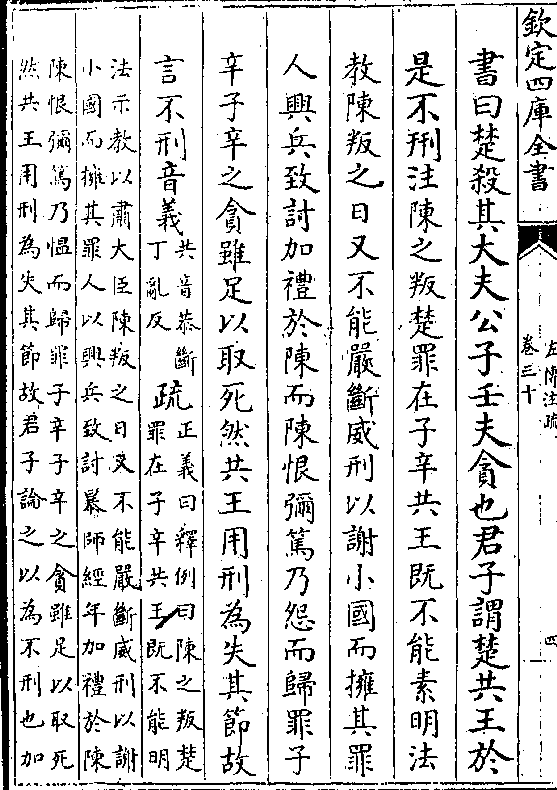 欽定四庫全書
左傳注疏
卷三十
四
書曰楚殺其大夫公子壬夫貪也君子謂楚共王於
是不刑注陳之叛楚罪在子辛共王既不能素明法
教陳叛之日又不能嚴斷威刑以謝小國而擁其罪
人興兵致討加禮於陳而陳恨彌篤乃怨而歸罪子
辛子辛之貪雖足以取死然共王用刑為失其節故
言不刑音義共音恭斷
丁亂反疏正義曰釋例曰陳之叛楚
罪在子辛共王既不能明
法示教以肅大臣陳叛之日又不能嚴斷威刑以謝
小國而擁其罪人以興兵致討暴師經年加禮於陳
陳恨彌篤乃愠而歸罪子辛子辛之貪雖足以取死
然共王用刑為失其節故君子論之以為不刑也加